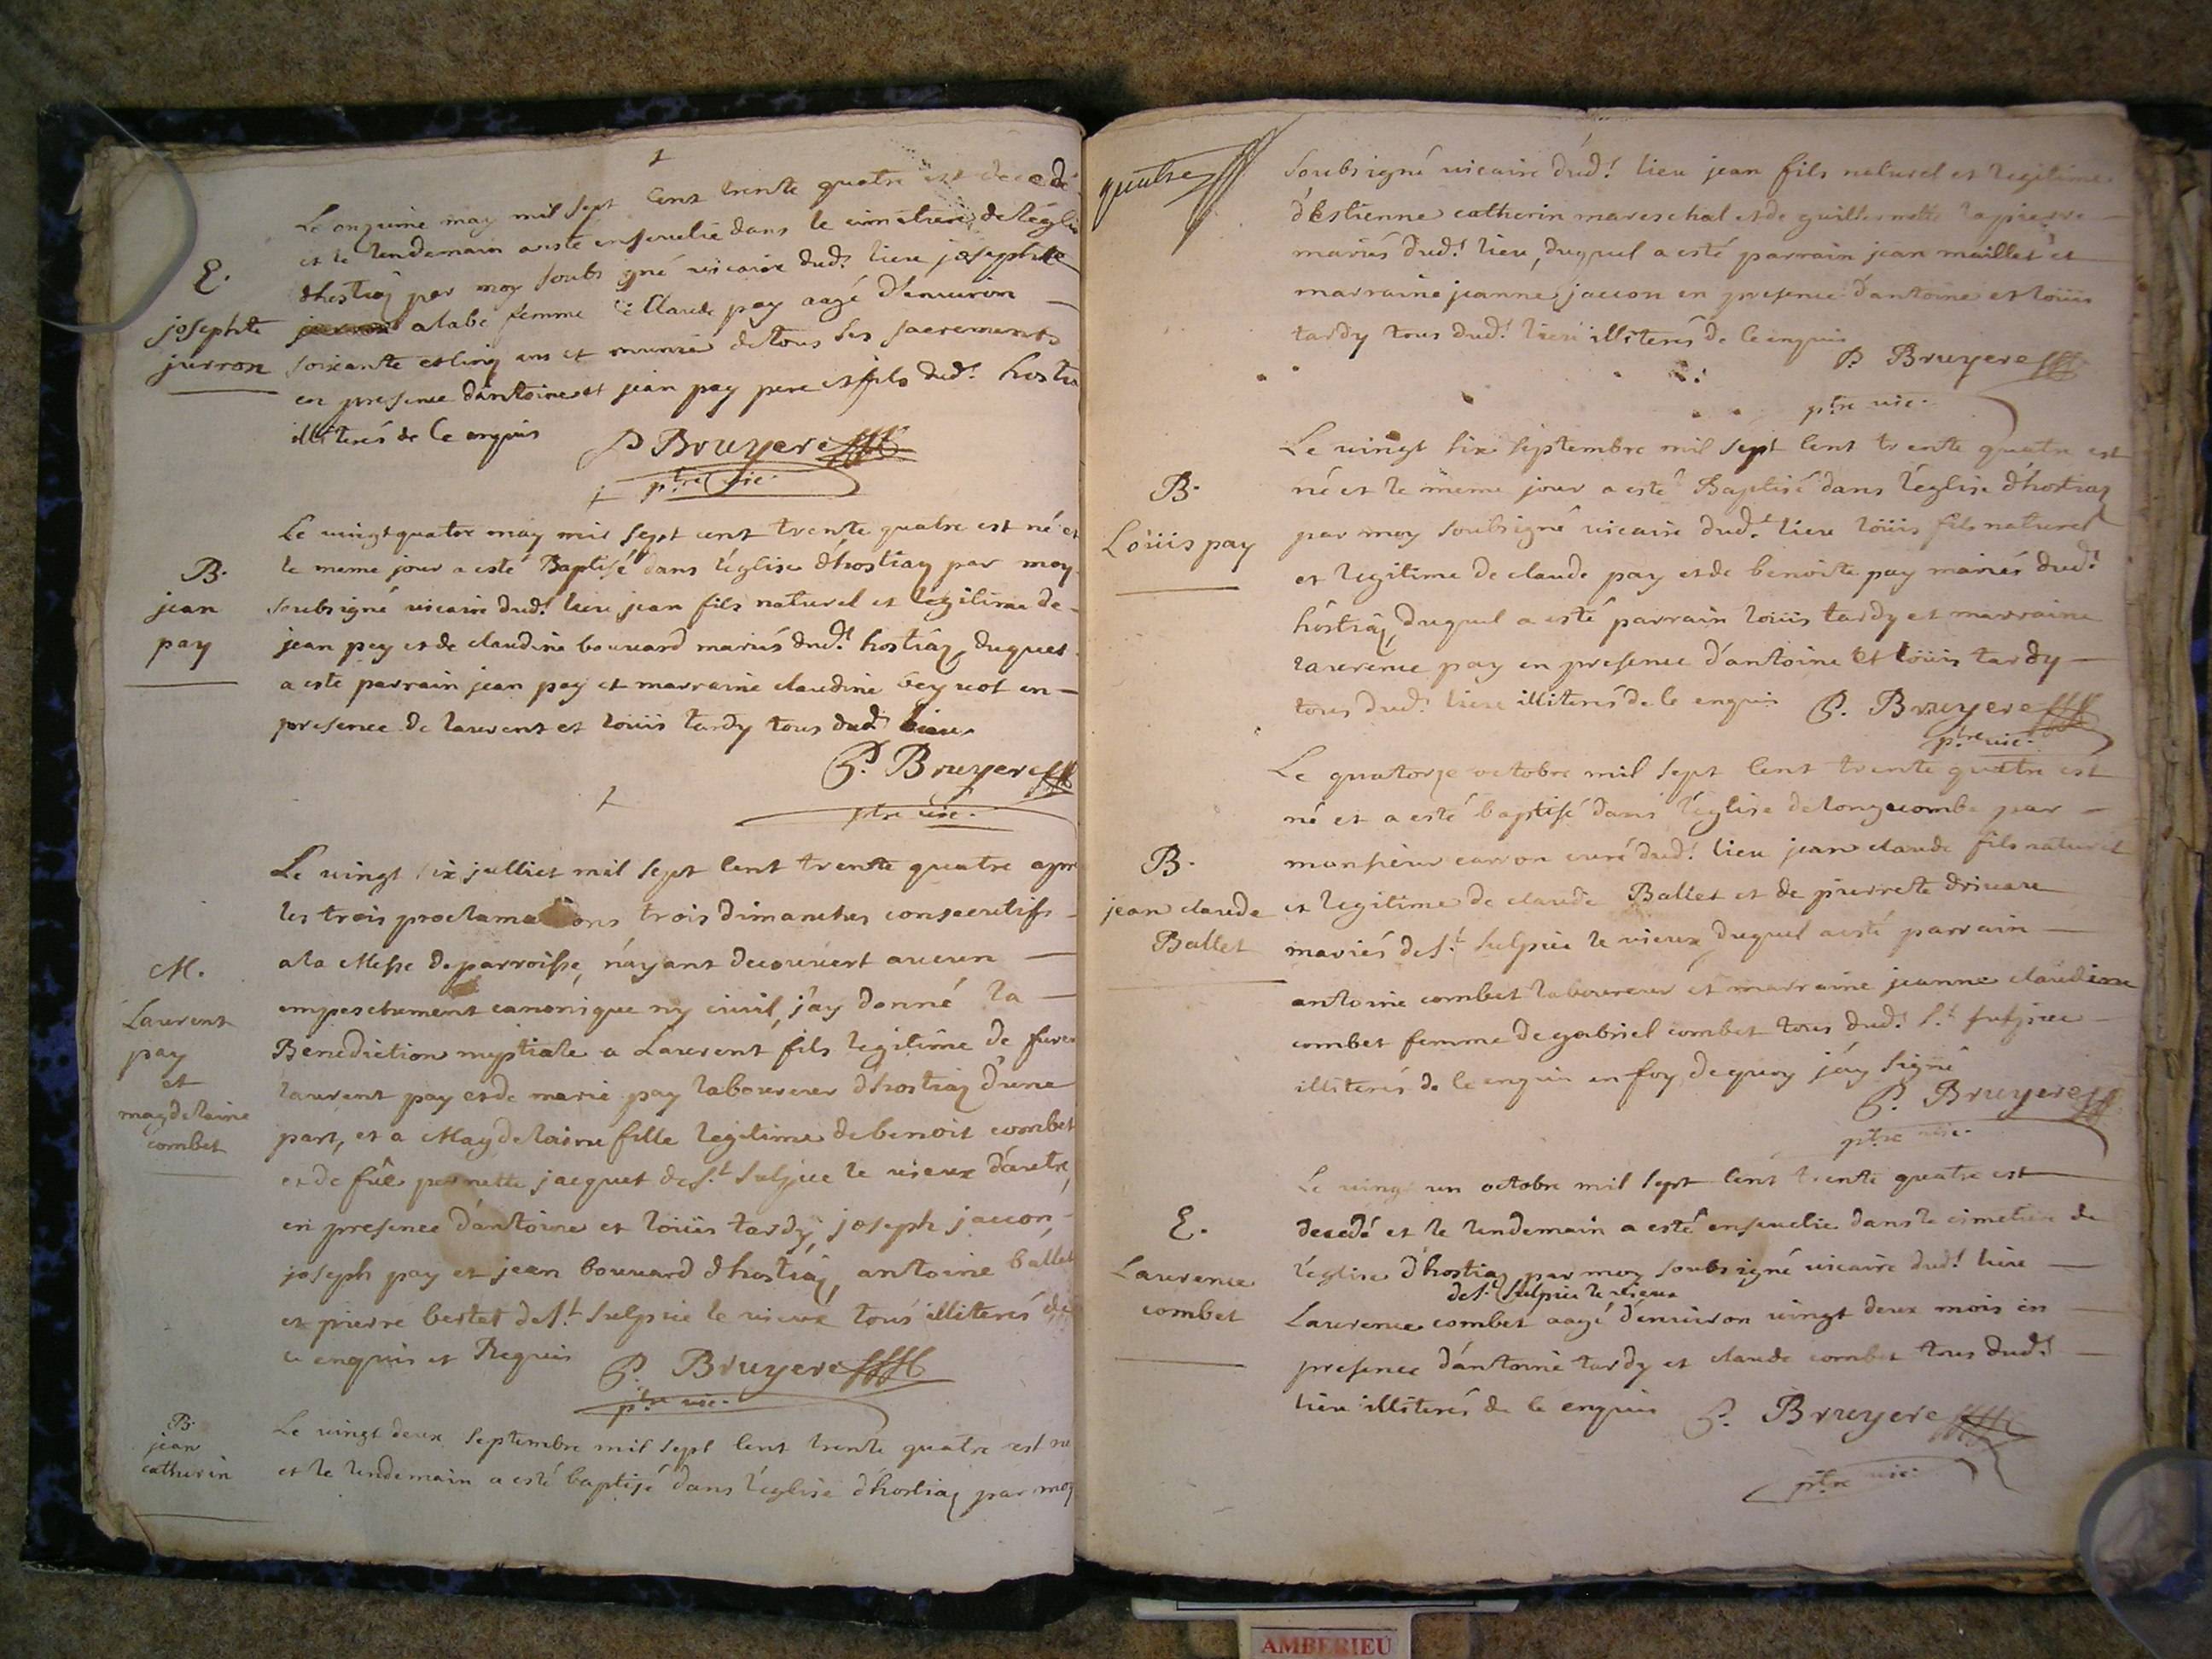 E.
josephte
jurron
Le onzieme may mil sept Cent trente quatre est decedé
et le lendemain a esté ensevelie dans le cimetiere de l'église
d'hostiaz par moy soubsigné vicaire dud.t lieu josephte
alabe femme de Claude pay aagé d'environ
soixante et cinq ans et munie de tous les sacrements
en presence d'antoine et jean pay pere et fils dud.t hostia
illiterés de Ce enquis P Bruyere
p.tre vic.
B.
jean
pay
Le vingt quatre may mil sept cent trente quatre est né et
le meme jour a esté Baptisé dans l'église d'hostiaz par moy
soubsigné vicaire dud.t lieu jean fils naturel et legitime de
jean pay et de claudine bouvard mariés dud.t hostiaz, duquel
a esté parrain jean pay et marraine claudine en
presence de laurent et loüis tardy tous dud.t lieu
P. Bruyere
ptre vic.
M.
Laurent
pay
et
magdelaine
combet
Le vingt six julliet mil sept cent trente quatre apres
les trois proclamations trois dimanches consecutifs
a la Messe de parroisse, n'ayant decouvert aucun
empeschement canonique ny civil, j'ay donné la
Benediction nuptiale a Laurent fils legitime de
laurent pay et de marie pay laboureur d'hostiaz d'une
part, et a Magdelaine fille legitime de benoit combet
et de fûe pernette jacquet de S.t Sulpice le vieux d'autre,
en presence d'antoine et loüis tardy, joseph jaccon,
joseph pay et jean bouvard d'hostiaz, antoine ballet
et pierre bertet de S.t Sulpice le vieux tous illiterés de
ce enquis et Requis P. Bruyere
p.tre vic.
B.
jean
catherin
Le vingt deux septembre mil sept cent trente quatre est né
et le lendemain a esté baptisé dans l'église d'hostiaz par moy
quatre
soubsigné vicaire dud.t lieu jean fils naturel et legitime
d'Estienne catherin mareschal et de guillermette lapierre
mariés dud.t lieu, duquel a esté parrain jean maillet et
marraine jeanne jaccon en presence d'antoine et loüis
tardy tous dud.t lieu illiterés de ce enquis
P. Bruyere
ptre vic.
B.
Loüis pay
Le vingt six septembre mil sept cent trente quatre est
né et le meme jour a esté Baptisé dans l'église d'hostiaz
par moy soubsigné vicaire dud.t lieu loüis fils naturel
et legitime de claude pay et de benoite pay mariés dud.t
hôstiaz, duquel a esté parrain loüis tardy et marraine
laurence pay en presence d'antoine et loüis tardy
tous dud.t lieu illiterés de ce enquis P. Bruyere
p.tre vic.
B.
jean claude
Ballet
Le quatorze octobre mil sept cent trente quatre est
né et a esté baptisé dans l'église de longecombe par
monsieur carron curé dud.t lieu jean claude fils naturel
et legitime de claude Ballet et de pierrette
mariés de S.t Sulpice le vieux, duquel a esté parrain
antoine combet laboureur et marraine jeanne claudine
combet femme de gabriel combet tous dud.t S.t sulpice
illiterés de ce enquis en foy de quoy j'ay signé
P. Bruyere
ptre vic.
E.
Laurence
combet
Le vingt un octobre mil sept cent trente quatre est
decedé et le lendemain a esté ensevelie dans le cimetiere de
l'église d'hostiaz par moy soubsigné vicaire dud.t lieu
de S.t Sulpice le vieux
Laurence combet aagé d'environ vingt deux mois en
presence d'antoine tardy et claude combet tous dud.t
lieu illiterés de ce enquis P. Bruyere
ptre vic.
AMBERIEU